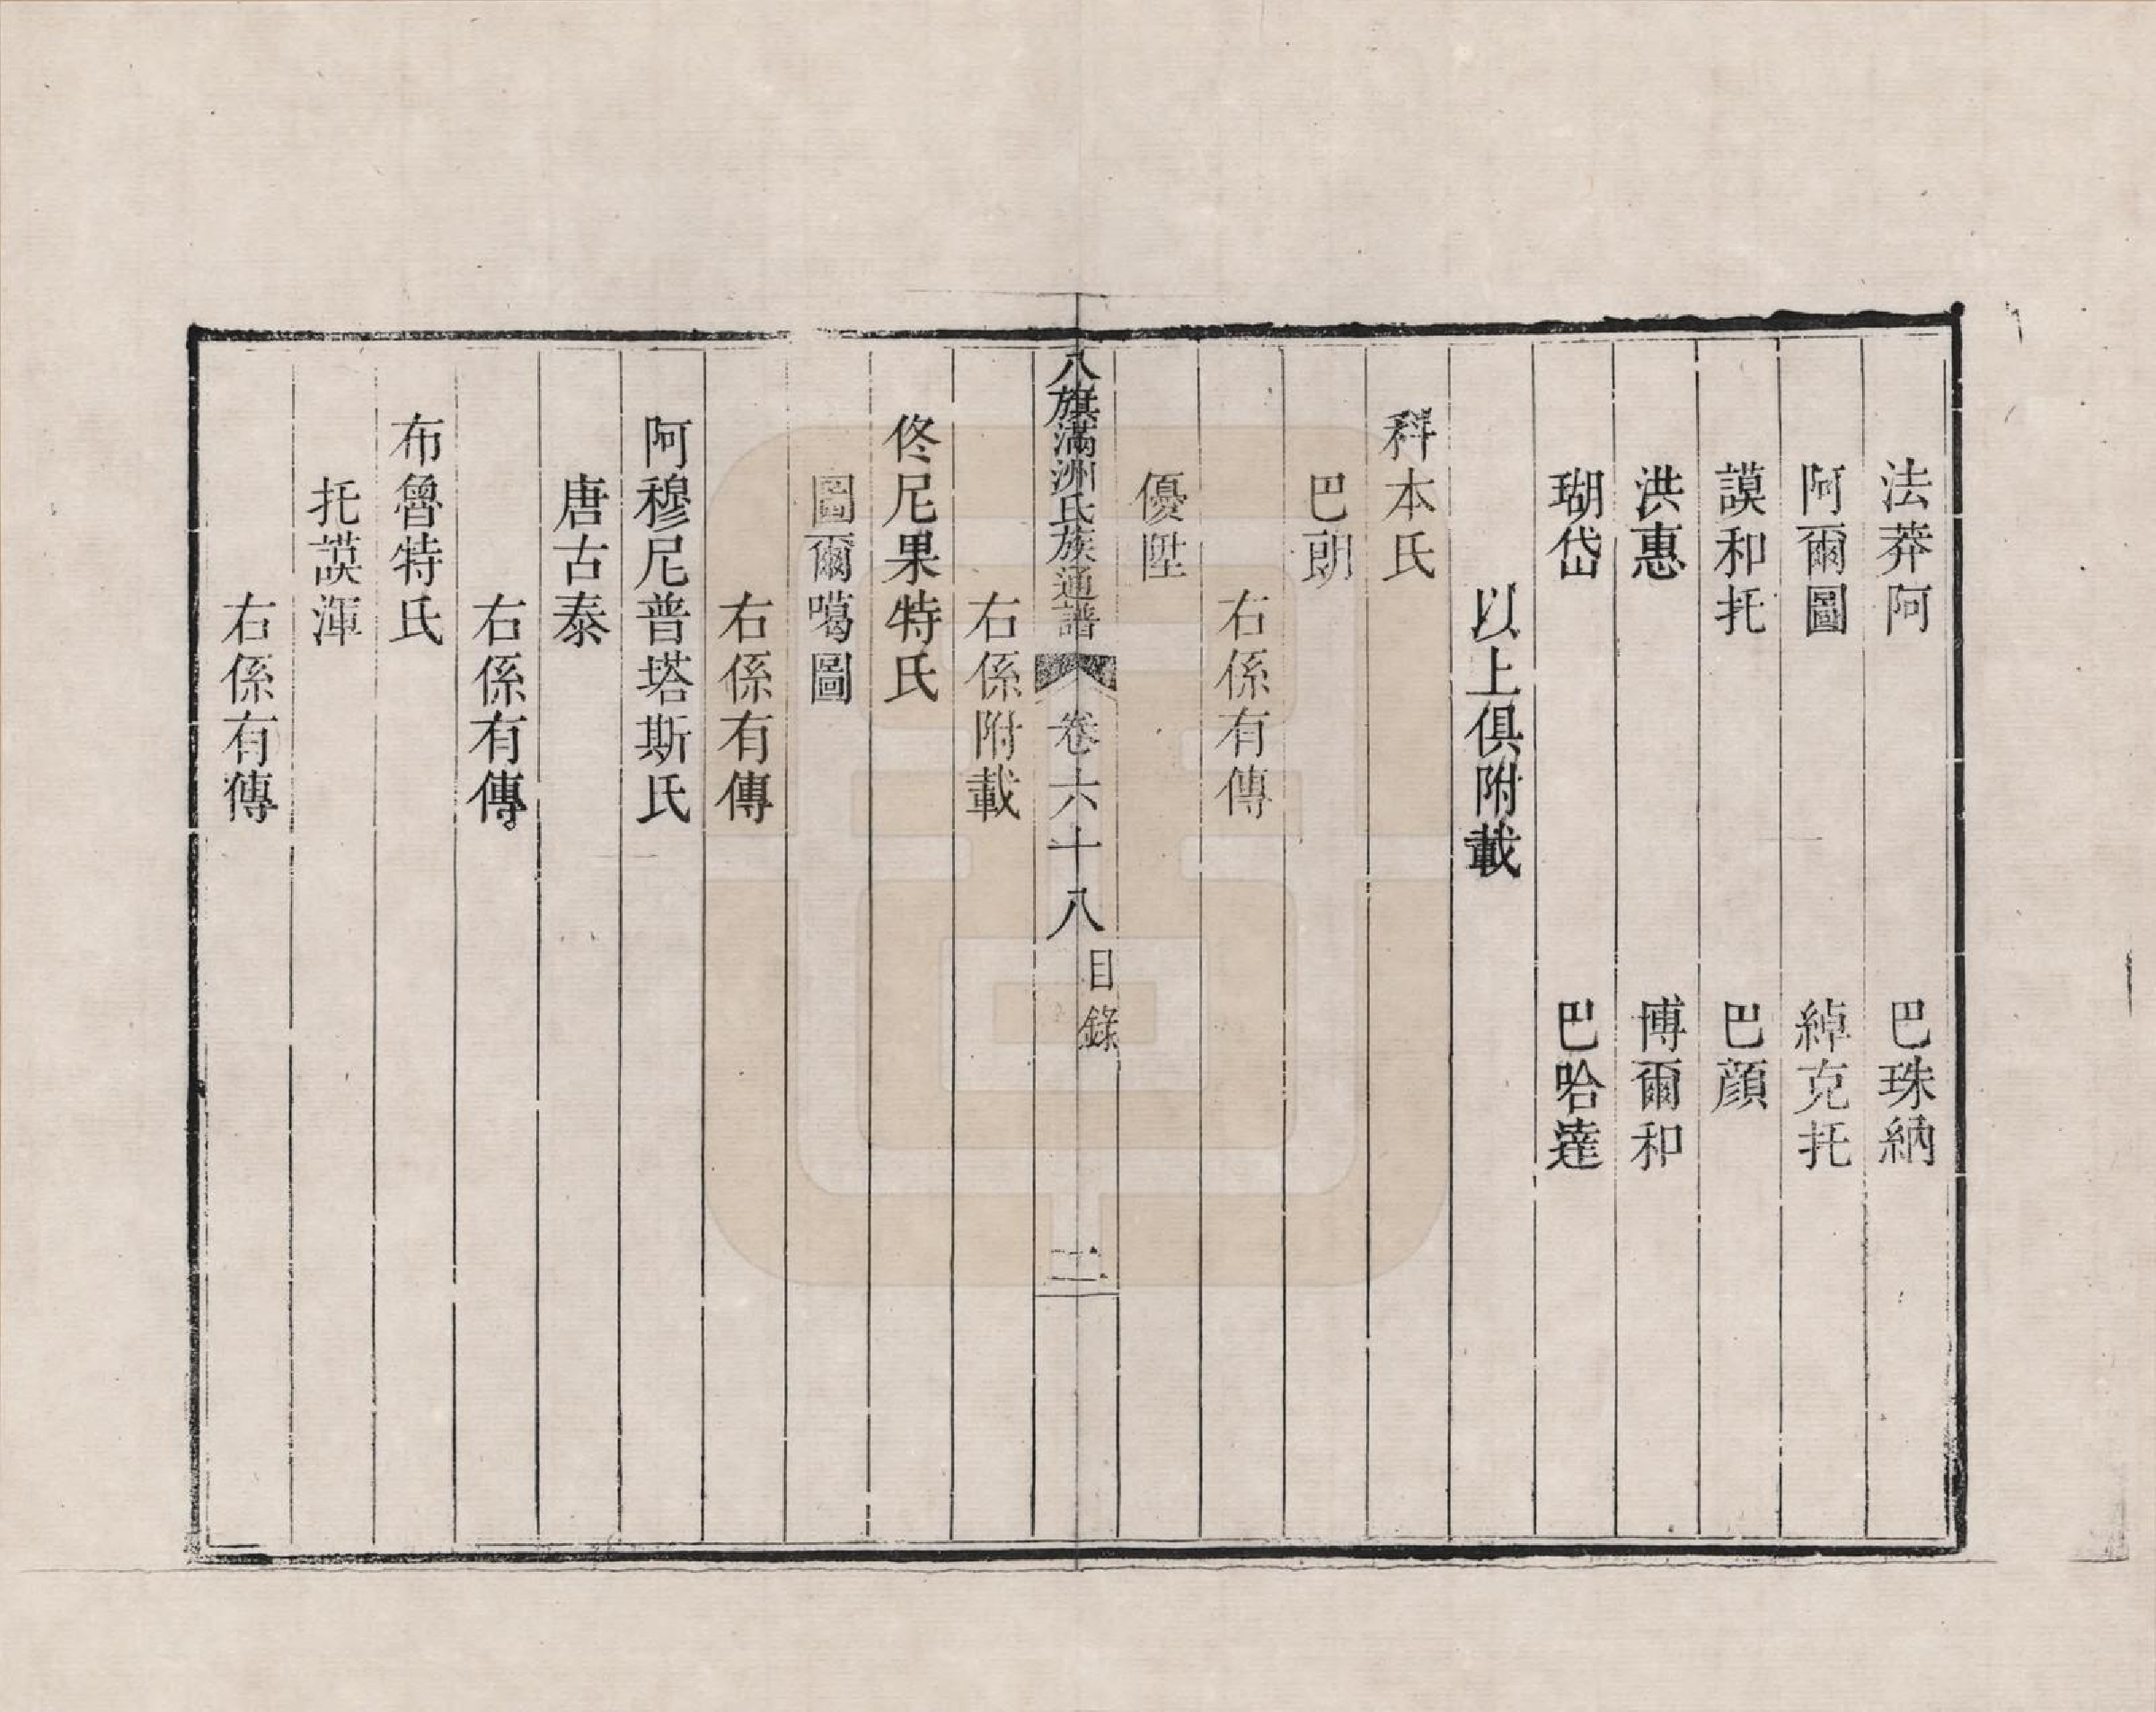 法莽阿　巴珠納
阿爾圖　綽克托
謨和托　巴顏
洪惠　博爾和
瑚岱　巴哈達
以上俱附載
科本氏
巴朗
右係有傳
優陞
八旗滿洲氏族通譜　卷六十八　目錄　二
右係附載
佟尼果特氏
圖爾噶圖
右係有傳
阿穆尼普塔斯氏
唐古泰
右係有傳
布魯特氏
托謨渾
右係有傳